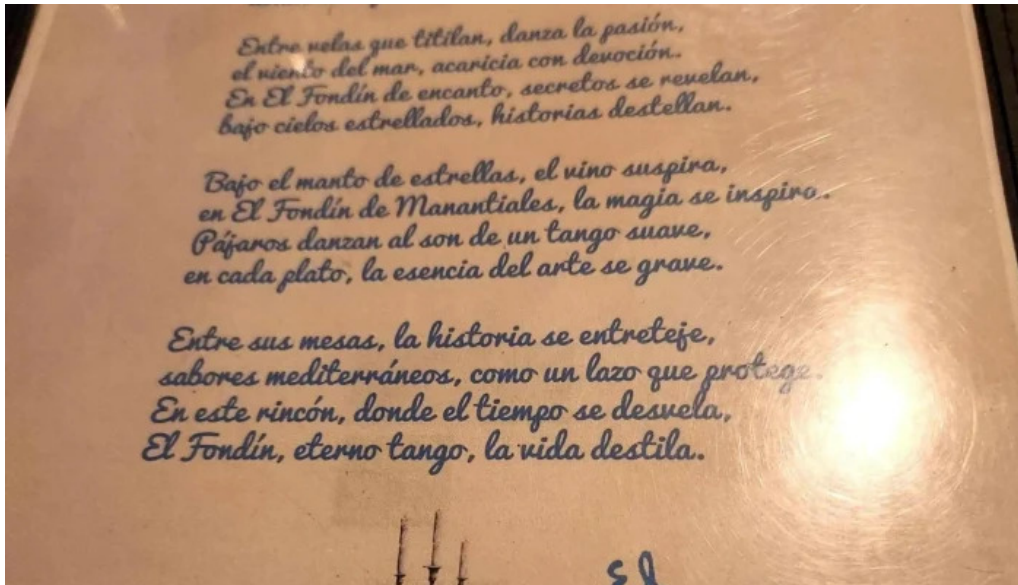 Entre velas que titilan, danza la pasión,
el viento del mar, acaricia con devoción.
En El Fondín de encanto, secretos se revelan,
bajo cielos estrellados, historias destellan.
Bajo el manto de estrellas, el vino suspira,
en El Fondín de Manantiales, la magia se inspira.
Pájaros danzan al son de un tango suave,
en cada plato, la esencia del arte se grave.
Entre sus mesas, la historia se entreteje,
sabores mediterráneos, como un lazo que protege.
En este rincón, donde el tiempo se desvela,
El Fondín, eterno tango, la vida destila.
El